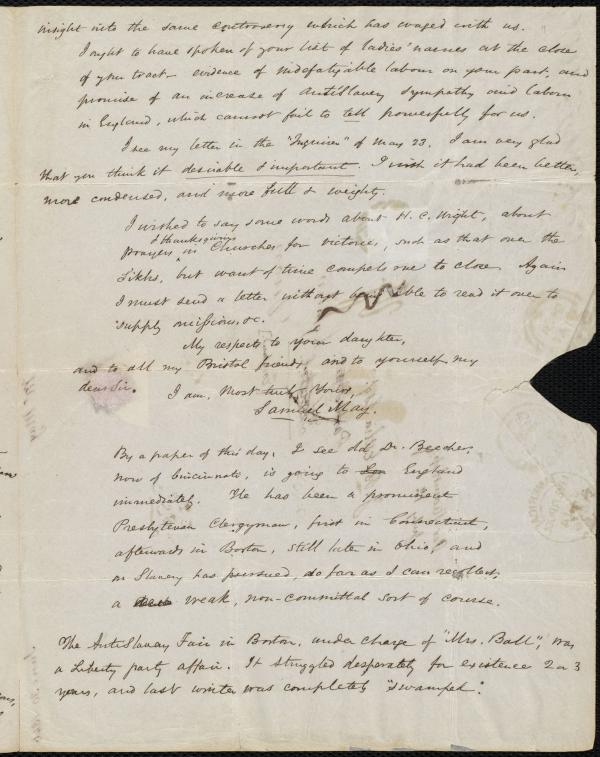 insight into the same controversy which has waged with us.
I ought to have spoken of your list of ladies' names at the close
of your tract - evidence of indefatigable labour on your part, and
promise of an increase of AntiSlavery sympathy and labour
in England, which cannot fail to tell powerfully for us.
I see my letter in the "Inquirer" of May 23. I am very glad
that you think it desirable & important. I wish it had been better,
more condensed, and more full & weighty.
I wished to say some words about H. C. Wright, about
& thanksgivings
prayers in Churches for victories, such as that over the
Sikhs, but want of time compels me to close. Again
I must send a letter without being able to read it over to
supply omissions, &c.
My respects to your daughter,
and to all my Bristol friends, and to yourself, my
dear Sir. I am, Most truly Yours,
Samuel May.
By a paper of this day, I see old Dr. Beecher,
now of Cincinnati, is going to England
immediately. He has been a prominent
Presbyterian Clergyman, first in Connecticut,
afterwards in Boston, still later in Ohio, and
on Slavery has pursued, so far as I can recollect,
a weak, non-committal sort of course.
The AntiSlavery Fair in Boston, under charge of "Mrs. Ball", was
a Liberty party affair. It struggled desperately for existence 2 or 3
years, and last winter was completely "swamped".